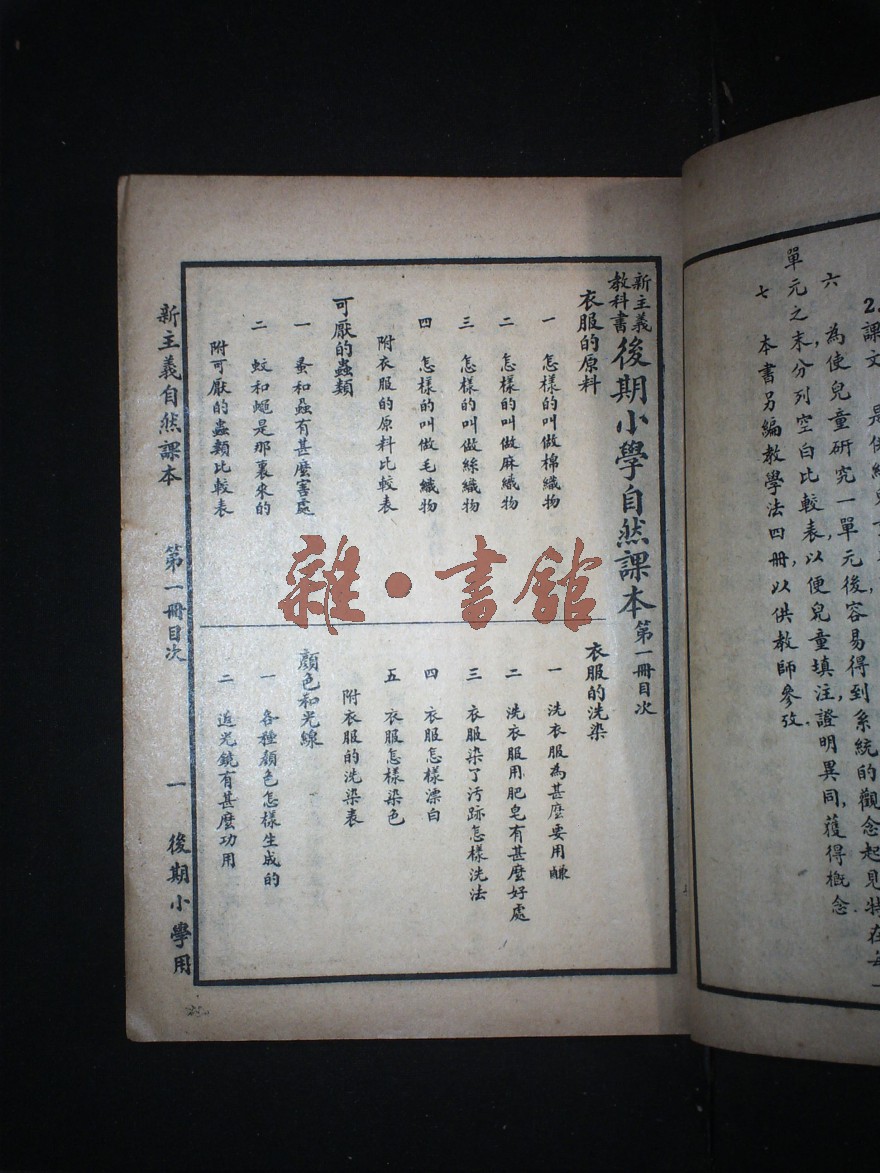 2.
課文
六 為使兒童研究一單元後容易得到系統的觀念起見特在每一
單元之末,分列空白比較表,以便兒童填注證明異同,獲得概念.
七 本書另編教學法四冊,以供教師參攷.
新主義
教科書
後期小學自然課本 第一冊目次
衣服的原料
一 怎樣的叫做棉織物
二 怎樣的叫做麻織物
三 怎樣的叫做絲織物
四 怎樣的叫做毛織物
附衣服的原料比較表
可厭的蟲類
一 蚤和蝨有甚麼害處
二 蚊和蠅是那裏來的
附可厭的蟲類比較表
衣服的洗染
一 洗衣服為甚麼要用鹻
二 洗衣服用肥皂有甚麼好處
三 衣服染了污跡怎樣洗法
四 衣服怎樣漂白
五 衣服怎樣染色
附衣服的洗染表
顏色和光線
一 各種顏色怎樣生成的
二 返光鏡有甚麼功用
新主義自然課本 第一冊目次 一 後期小學用
雜·書館